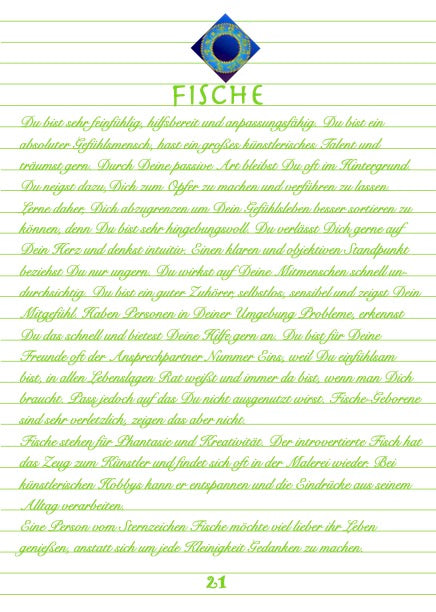 FISCHE
Du bist sehr feinfühlig, hilfsbereit und anpassungsfähig. Du bist ein
absoluter Gefühlsmensch, hast ein großes künstlerisches Talent und
träumst gern. Durch Deine passive Art bleibst Du oft im Hintergrund.
Du neigst dazu, Dich zum Opfer zu machen und verführen zu lassen.
Lerne daher, Dich abzugrenzen um Dein Gefühlsleben besser sortieren zu
können, denn Du bist sehr hingebungsvoll. Du verlässt Dich gerne auf
Dein Herz und denkst intuitiv. Einen klaren und objektiven Standpunkt
beziehst Du nur ungern. Du wirkst auf Deine Mitmenschen schnell un-
durchsichtig. Du bist ein guter Zuhörer, selbstlos, sensibel und zeigst Dein
Mitgefühl. Haben Personen in Deiner Umgebung Probleme, erkennst
Du das schnell und bietest Deine Hilfe gern an. Du bist für Deine
Freunde oft der Ansprechpartner Nummer Eins, weil Du einfühlsam
bist, in allen Lebenslagen Rat weißt und immer da bist, wenn man Dich
braucht. Pass jedoch auf das Du nicht ausgenutzt wirst. Fische-Geborene
sind sehr verletzlich, zeigen das aber nicht.
Fische stehen für Phantasie und Kreativität. Der introvertierte Fisch hat
das Zeug zum Künstler und findet sich oft in der Malerei wieder. Bei
künstlerischen Hobbys kann er entspannen und die Eindrücke aus seinem
Alltag verarbeiten.
Eine Person vom Sternzeichen Fische möchte viel lieber ihr Leben
genießen, anstatt sich um jede Kleinigkeit Gedanken zu machen.
21